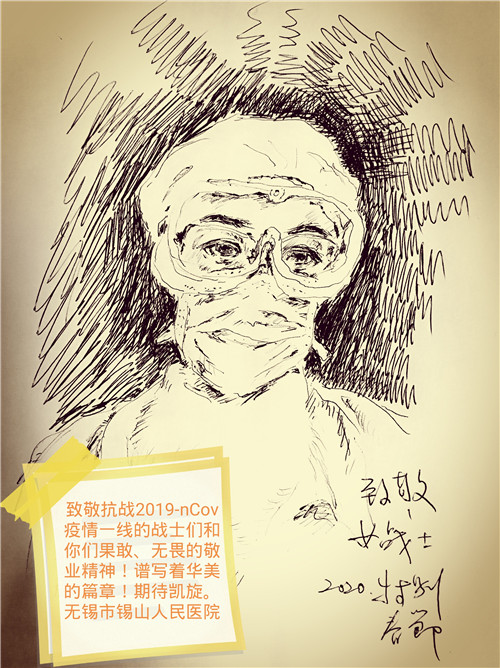 致敬抗战2019-nCov
疫情一线的战士们和
你们果敢、无畏的敬
业精神！谱写着华美
的篇章！期待凯旋。
无锡市锡山人民医院
致敬
女战士
2020.特别
春节